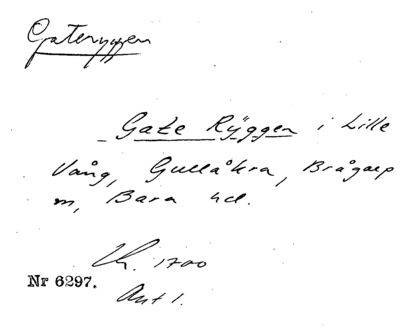 Gateryggen
Gate Rÿggen i Lille
Vång, Gullåkra, Brågarp
m, Bara hd.
Lk. 1700
Nr 6297.
Ant 1.